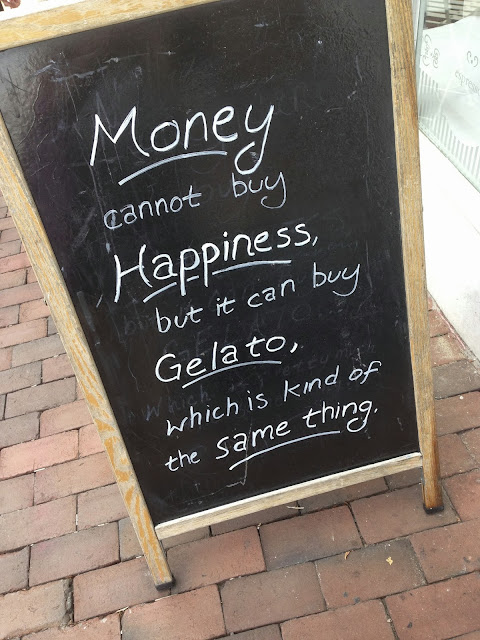 Money
cannot buy
Happiness,
but it can buy
Gelato,
which is kind of
the same thing.